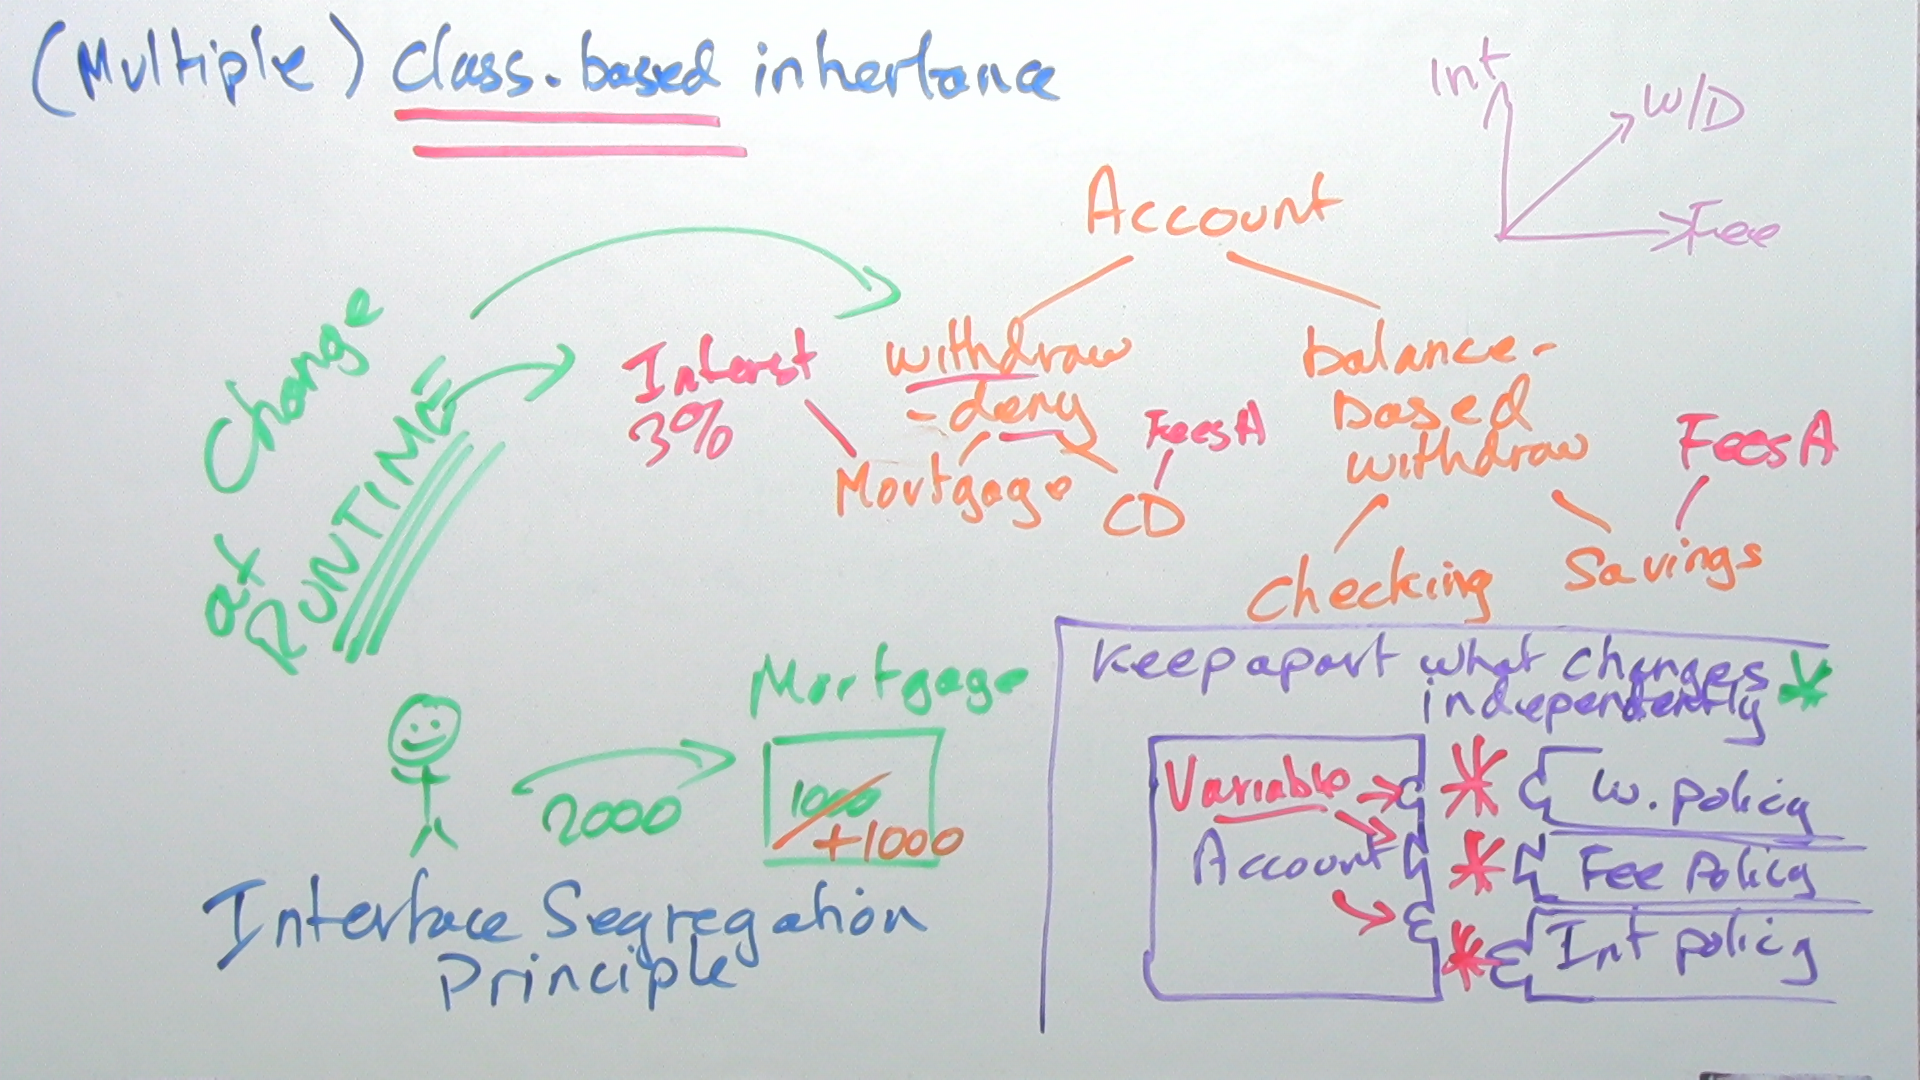 (Multiple) class-based inhertance
Int
W/D
Fee
Account
Change
at
RUNTIME
Interst
3%
withdraw
-deny
Mortgage
FeesA
CD
balance-
based
withdraw
FeesA
Checking
Savings
Mortgage
2000
1000
+1000
Interface Segregation
Principle
Keep apart what changes
independently
Variable
Account
W. policy
Fee Policy
Int policy